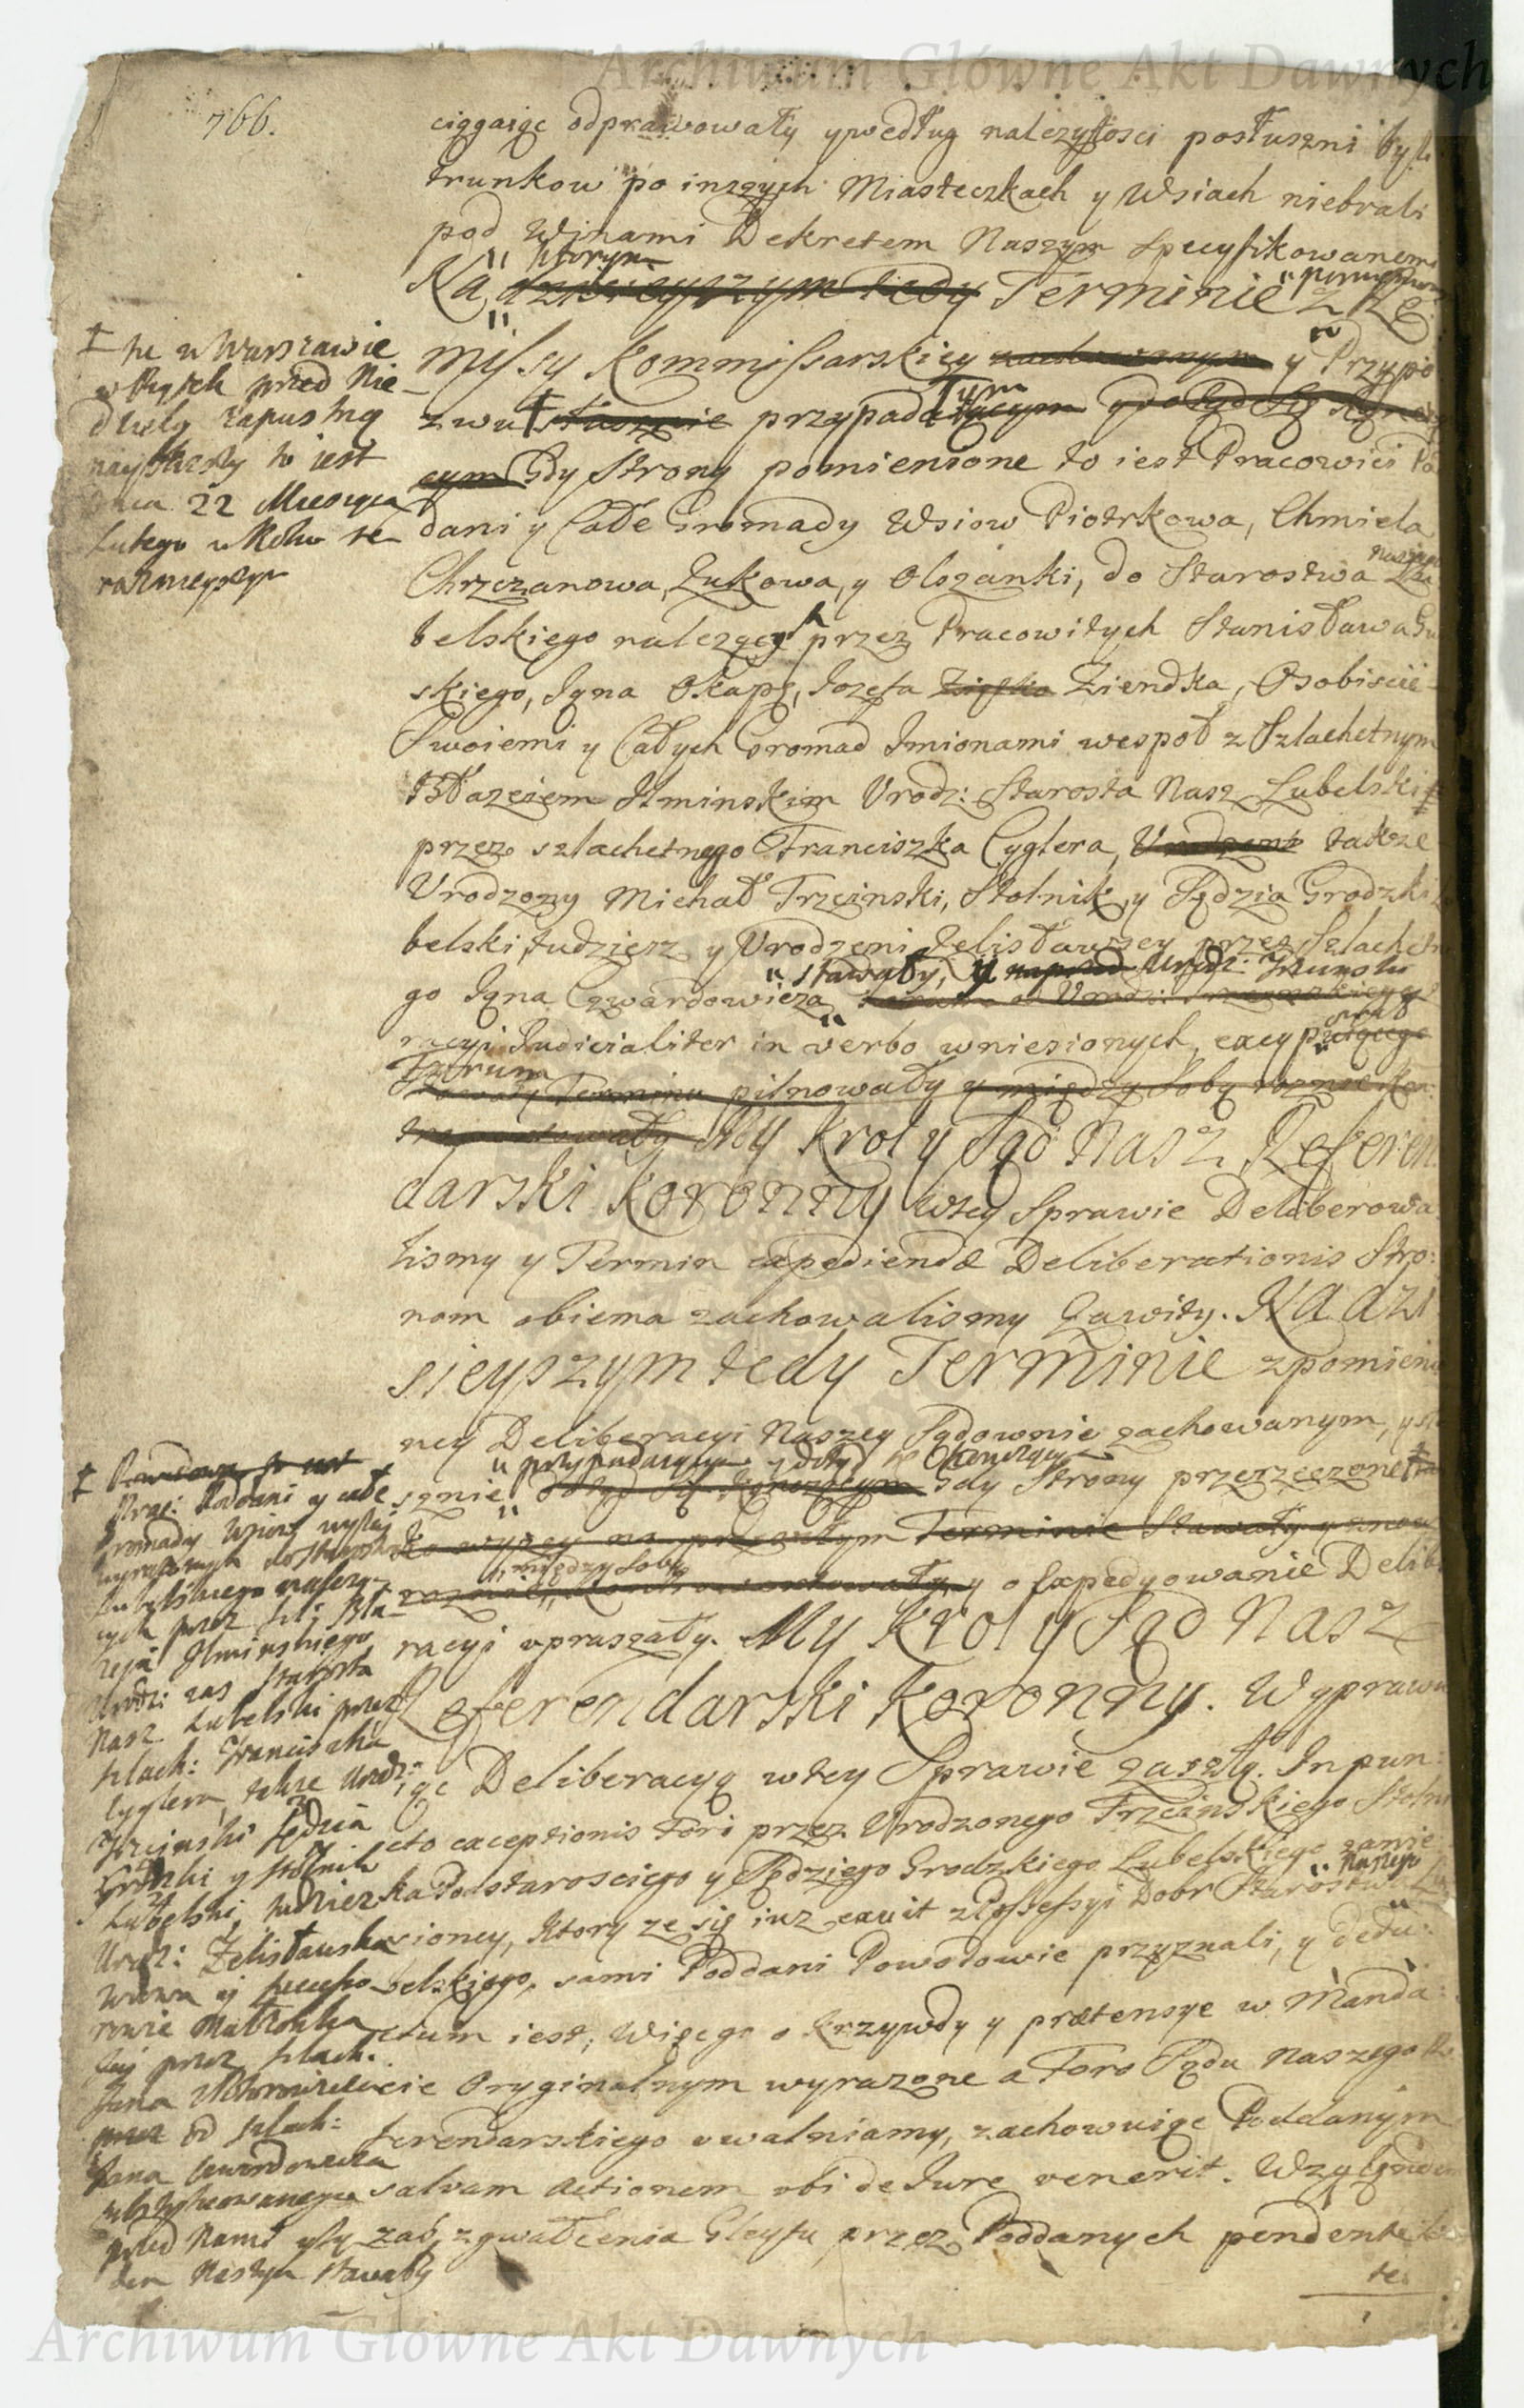 Archiwum Główne Akt Dawnych
766.
ciągaiąc odprawowały ypodług należytosci posłuszni byli
trunkow po inszych Miasteczkach y Wsiach niebrali
pod Winami Dekretem Naszym specyfikowanemi
ktorym
Na dzisieyszym tedy Terminie z Re
missy Kommissarskiey y Przypo
zwu słusznie przypada
Tym
cym Gdy Strony pomienione to iest Pracowici Pod
dani y Całe Gromady Wsiow Piotrkowa, Chmiela
Chrzczanowa, Zukowa, y Olszanki, do Starostwa Lu
Naszego
belskiego należący przez Pracowitych Stanisława
skiego, Jana Okapę, Jozefa Ziendka, Osobiscie
Swoiemi y Całych Gromad Imionami wespoł z Szlachetnym
Błazeiem Ilminskim Urodz: Starosta Nasz Lubelski
przez szlachetnego Franciszka Cyglera, także
Urodzony Michał Trzcinski, Stolnik, y Sędzia Grodzki
belski, tudziesz y Urodzeni Zelisławscy przez Szlachetne
stawały, y naprzod Urodz: Trzcinski
go Jana Czwardowicza
racyi Judicialiter in verbo wniesionych, excy
Forum
Terminu pilnowały y między Soby
My Krol y Sąd Nasz Referen
darski Koronny wtey Sprawie Deliberowa
lismy y Termin expediendæ Deliberationis Stro:
nom obiema zachowalismy Zawity. Na dzi
sieyszym tedy Terminie zpomienio
ney Deliberacyi Naszey Sądownie zachowanym, y
przypadaiącym y dotąd
sznie Gdy Strony przerzeczone
wyzey na przeszłym Terminie Stawały y znow
między Sobą
y o Expedyowanie Delibe
racyi upraszały. My Krol y Sąd Nasz
Referendarski Koronny. Wyprawu
iąc Deliberacyą wtey Sprawie zaszłą. In pun:
cto exceptionis Fori przez Urodzonego Trzcinskiego Stolni
ka Podstarosciego y Sędziego Grodzkiego Lubelskiego zanie
Naszego
sioney, ktory ze się iuz exuit z Possessyi Dobr Starostwa Lu
belskiego, sami Poddani Powodowie przyznali, y dedu:
ctum iest, Więc go o krzywdy y prætensye w Manda:
cie Oryginalnym wyrazone a Foro Sądu Naszego Re
ferendarskiego uwalniamy, zachowuiąc Poddanym
salvam actionem ubi de Jure venerit. Względem
zaś zgwałcenia Gleytu przez Poddanych pendente
te
tu w Warszawie
w Piątek przed Nie
dzielą zapustną
nayblizszy to iest
Dnia 22 Miesiąca
Lutego w Roku te
raznieyszym
Prac: Poddani y całe
Gromady Wsiow wyzey
wyrazonych do Starostwa
Lubelskiego należą
cych przez Szl: Bła
zeja Ilminskiego
Urodz: zas Starosta
Nasz Lubelski przez
szlach: Franciszka
Cyglera, także Urodz:
Trzcinski Sędzia
Grodzki y Stolnik
Lubelski, tudziez
Urodz: Zelisławska
Wdowa y Sukcesso
rowie Małzonka
Jey przez szlach:
Jana
od szlach:
Jana Czwardowicza
substytuowanego
przed Nami y Są
dem Naszym stawały
Archiwum Główne Akt Dawnych